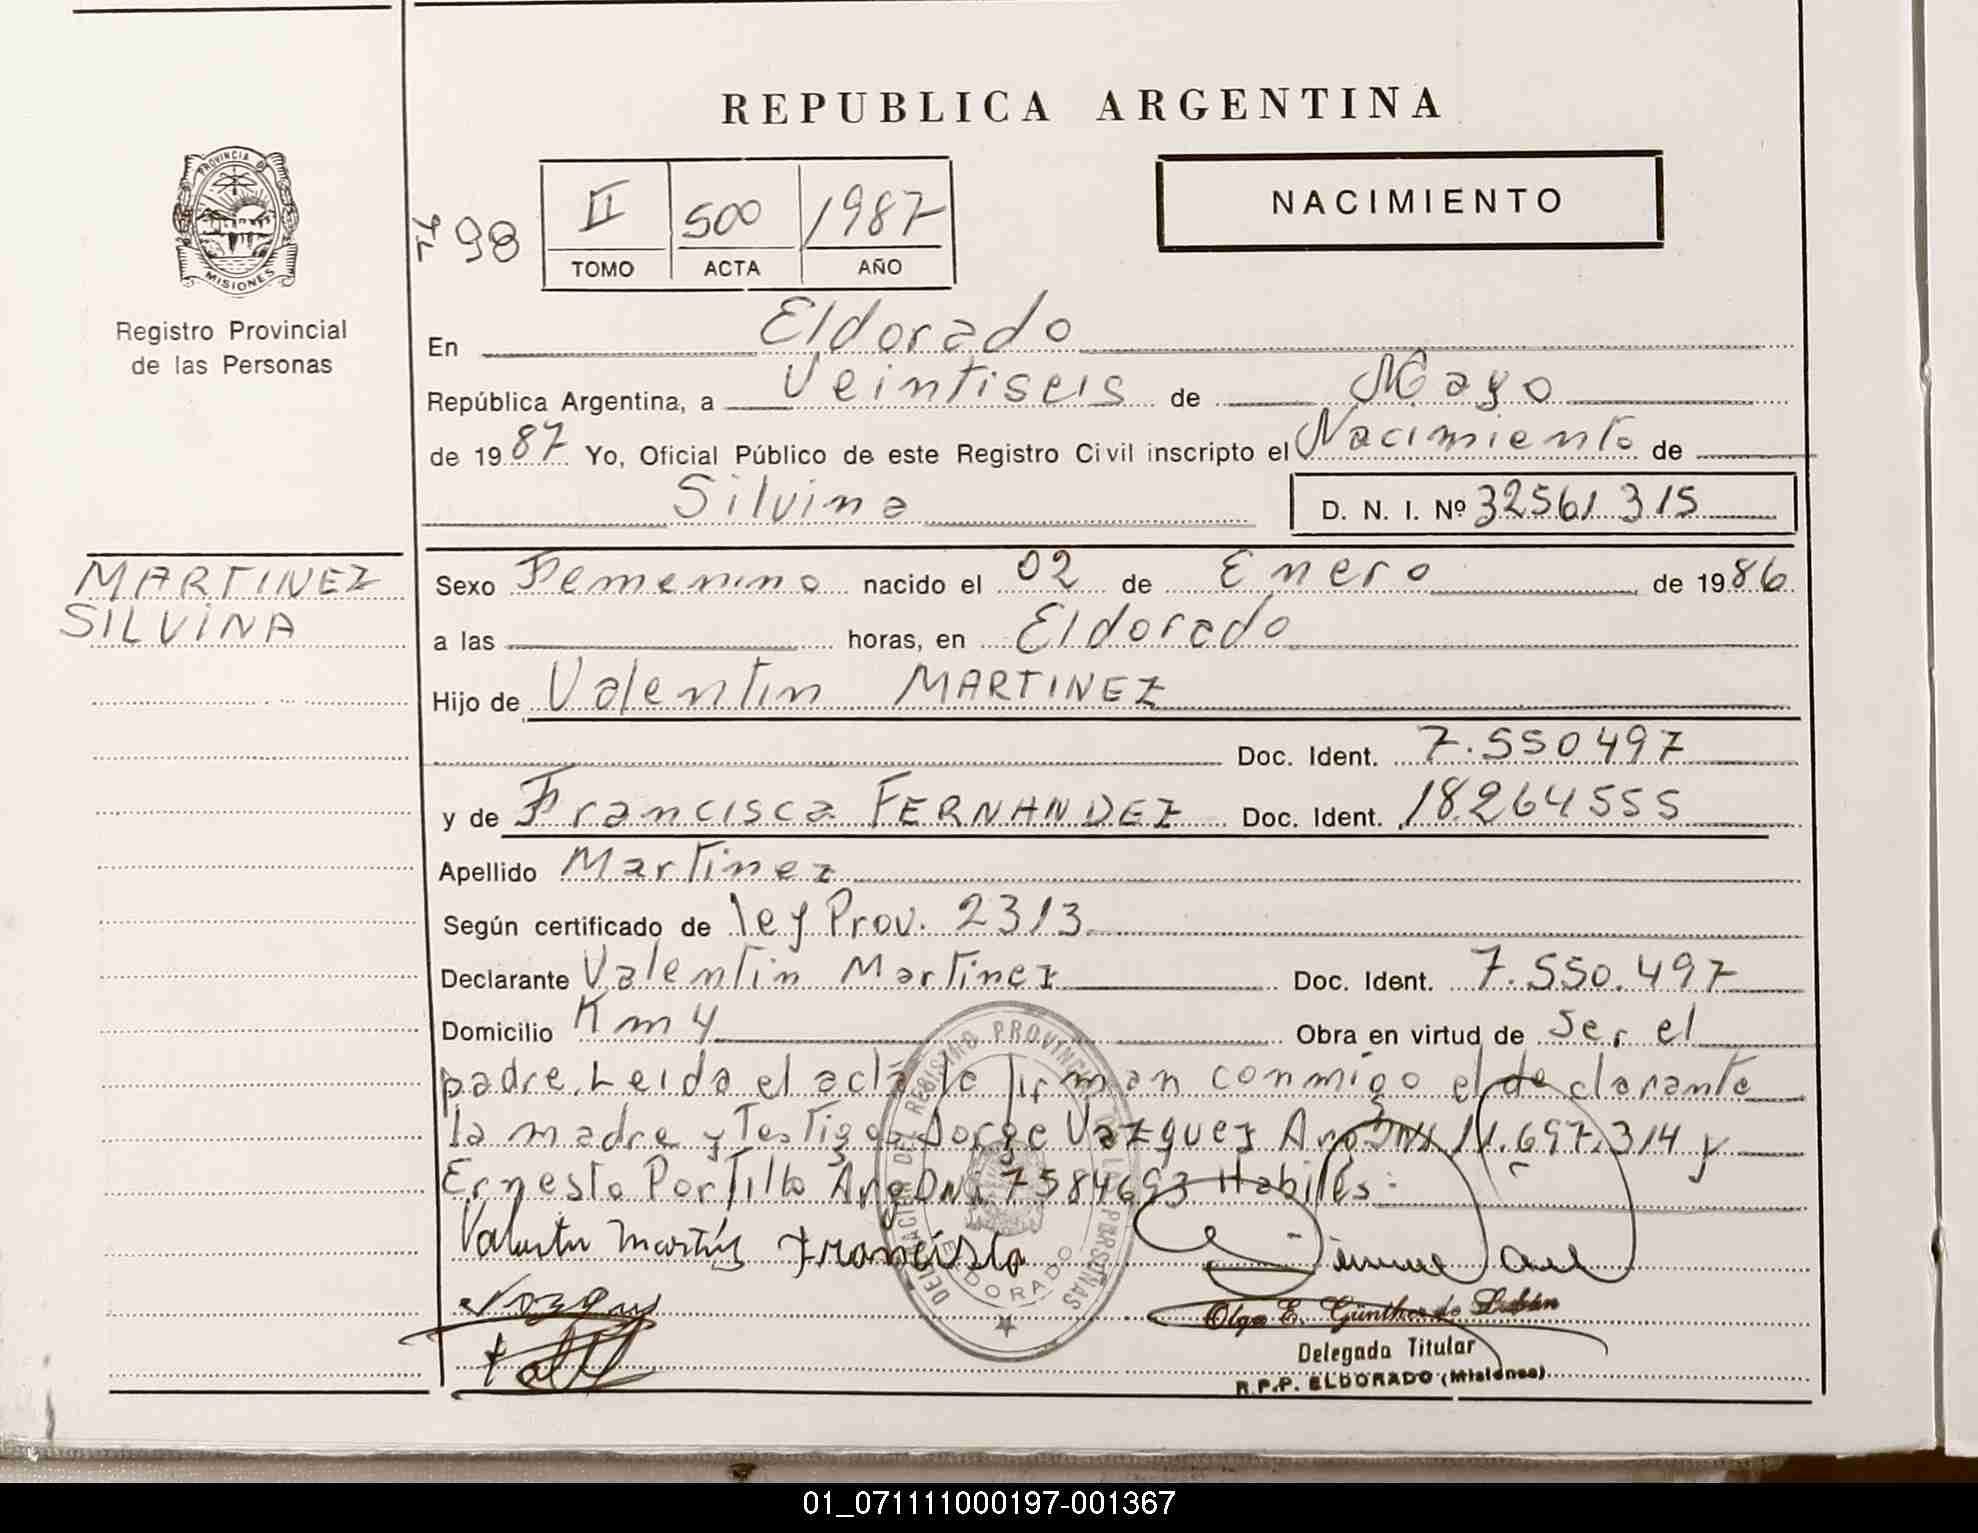 REPUBLICA ARGENTINA
PROVINCIA DE
MISIONES
Registro Provincial
de las Personas
98
II 500 1987
TOMO ACTA AÑO
NACIMIENTO
En Eldorado
República Argentina, a Veintiseis de Mayo
de 1987 Yo, Oficial Público de este Registro Civil inscripto el Nacimiento de
Silvina D. N. I. Nº 32561315
MARTINEZ
SILVINA
Sexo Femenino nacido el 02 de Enero de 1986
a las horas, en Eldorado
Hijo de Valentin MARTINEZ
Doc. Ident. 7.550497
y de Francisca FERNANDEZ Doc. Ident. 18264555
Apellido Martinez
Según certificado de ley Prov. 2313
Declarante Valentin Martinez Doc. Ident. 7.550.497
Domicilio Km 4 Obra en virtud de Ser el
padre. Leida el acta la firman conmigo el declarante
la madre y Testigos Jorge Vazquez Arg DNI 11.697.314 y
Ernesto Portillo Arg DNI 7584693 Habiles:
DELEGACION DEL REGISTRO PROVINCIAL DE LAS PERSONAS
ELDORADO
Valentin Martinez Francisca
Vazquez
Olga E. Günther de
Delegada Titular
R.P.P. ELDORADO (Misiones)
01_071111000197-001367